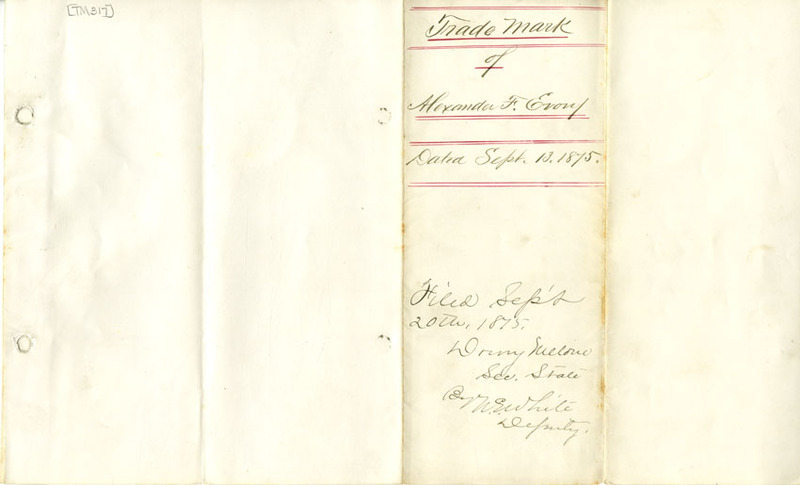 [TM317]
Trade Mark
of
Alexander F. Evory
Dated Sept. 13. 1875.
Filed Sept
20th, 1875.
Drury Melone
Sec. State
By W.E. White
Deputy.